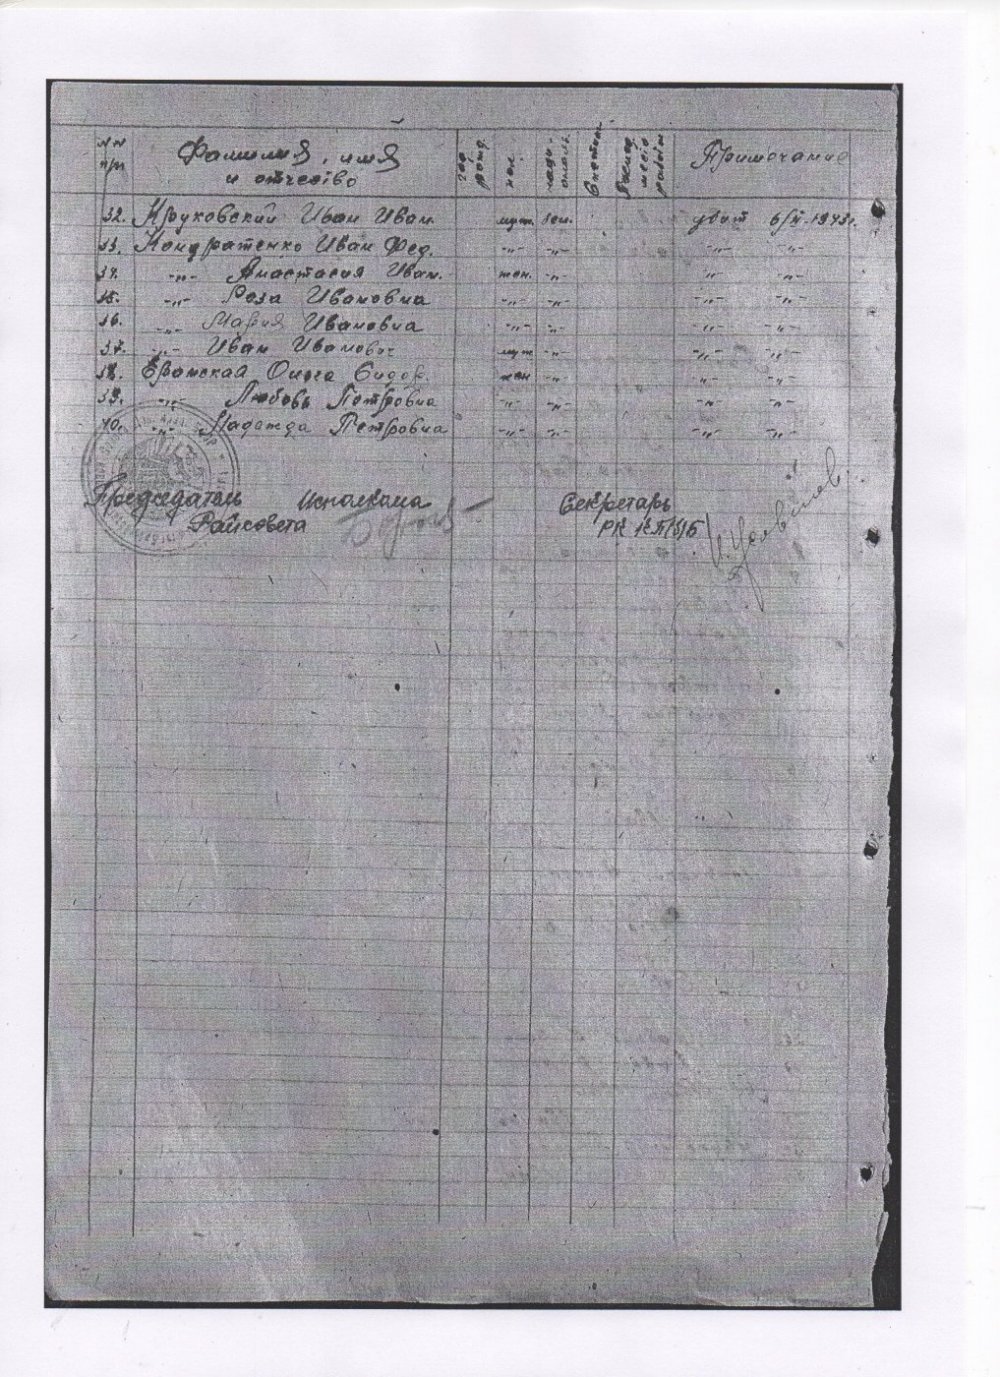 №№ п/п Фамилия, имя и отчество год рожд. пол. наци. ональ. Примечание
32. Круковский Иван Иван. муж. бел. убит 6/II. 1943г.
33. Кондратенко Иван Фед. -"- -"- -"- -"-
34. -"- Анастасия Иван. жен. -"- -"- -"-
35. -"- Роза Ивановна -"- -"- -"- -"-
36. -"- Мария Ивановна -"- -"- -"- -"-
37. -"- Иван Иванович муж -"- -"- -"-
38. Ольга Сидор. жен -"- -"- -"-
39. -"- Любовь Петровна -"- -"- -"- -"-
40. -"- Надежда Петровна -"- -"- -"- -"-
Председатель Исполкома Секретарь
Райсовета РК КП(б)Б